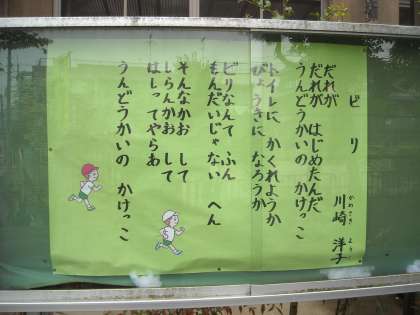 ビリ
川崎 洋子
かわさき ようこ
だれが
だれが はじめたんだ
うんどうかいの かけっこ
トイレに かくれようか
びょうきに なろうか
ビリなんて ふん
もんだいじゃない へん
そんなかお して
しらんかお して
はしってやらあ
うんどうかいの かけっこ